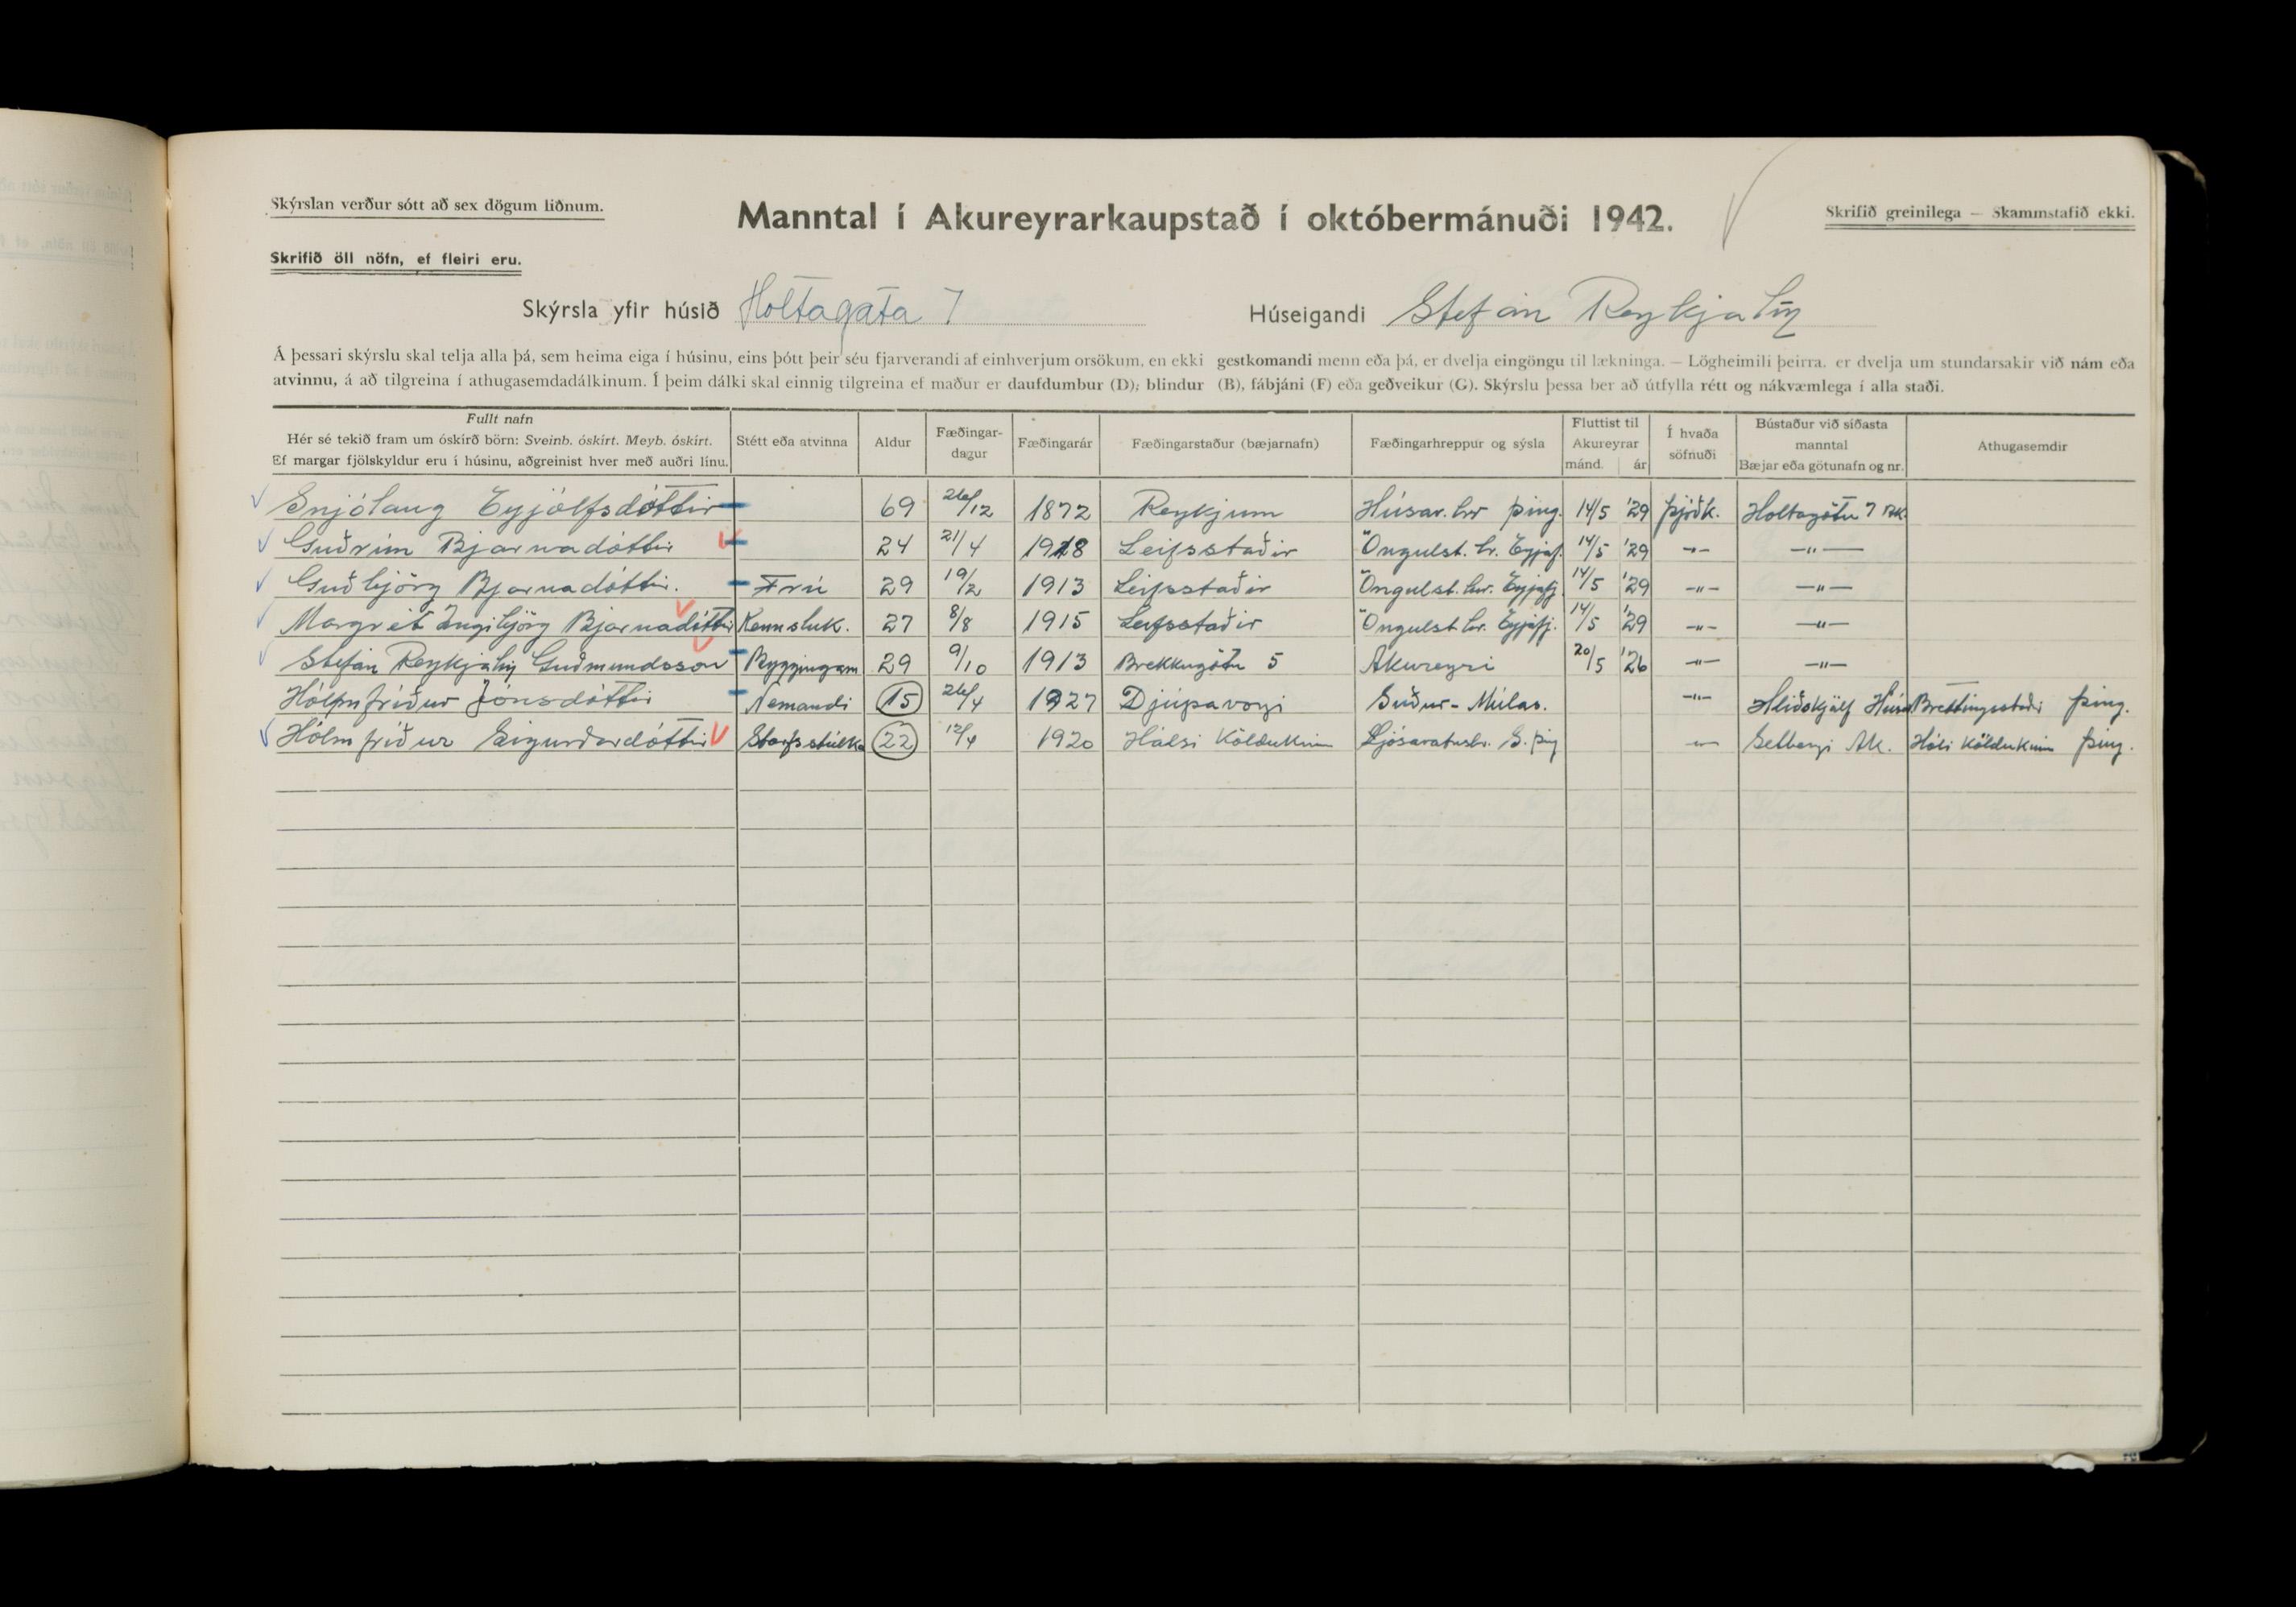 Skýrslan verður sótt að sex dögum liðnum.
Manntal í Akureyrarkaupstað í októbermánuði 1942.
Skrifið greinilega — Skammstafið ekki.
Skrifið öll nöfn, ef fleiri eru.
Skýrsla yfir húsið Holtagata 7 Húseigandi Stefán Reykjalín
Á þessari skýrslu skal telja alla þá, sem heima eiga í húsinu, eins þótt þeir séu fjarverandi af einhverjum orsökum, en ekki gestkomandi menn eða þá, er dvelja eingöngu til lækninga. — Lögheimili þeirra. er dvelja um stundarsakir við nám eða
atvinnu, á að tilgreina í athugasemdadálkinum. Í þeim dálki skal einnig tilgreina ef maður er daufdumbur (D); blindur (B), fábjáni (F) eða geðveikur (G). Skýrslu þessa ber að útfylla rétt og nákvæmlega í alla staði.
Fullt nafn
Hér sé tekið fram um óskírð börn: Sveinb. óskírt. Meyb. óskírt.
Ef margar fjölskyldur eru í húsinu, aðgreinist hver með auðri línu.
Stétt eða atvinna
Aldur
Fæðingar-
dagur
Fæðingarár
Fæðingarstaður (bæjarnafn)
Fæðingarhreppur og sýsla
Fluttist til
Akureyrar
mánd. ár
Í hvaða
söfnuði
Bústaður við síðasta
manntal
Bæjar eða götunafn og nr.
Athugasemdir
Snjólaug Eyjólfsdóttir 69 26/12 1872 Reykjum Húsav. hr þing. 14/5 '29 þjóðk. Holtagötu 7 Ak.
Guðrún Bjarnadóttir 24 21/4 1918 Leifsstaðir Öngulst. hr. Eyjaf. 14/5 '29 -"- -"-
Guðbjörg Bjarnadóttir. Frú 29 19/2 1913 Leifsstaðir Öngulst. hr. Eyjafj. 14/5 '29 -"- -"-
Margrét Ingibjörg Bjarnadóttir Kennsluk. 27 8/8 1915 Leifsstaðir Öngulst. hr. Eyjafj. 14/5 '29 -"- -"-
Stefán Reykjalín Guðmundsson Byggingam 29 9/10 1913 Brekkugötu 5 Akureyri 20/5 '26 -"- -"-
Hólmfríður Jónsdóttir Nemandi 15 26/4 1927 Djúpavogi Suður-Múlas. -"- Hliðskjálf Húsa Brettingsstaðir Þing.
Hólmfríður Sigurðardóttir Starfsstúlka 22 12/4 1920 Hálsi Köldukinn Ljósavatnshr. S. þing -"- Ak. Hóli Köldukinn Þing.